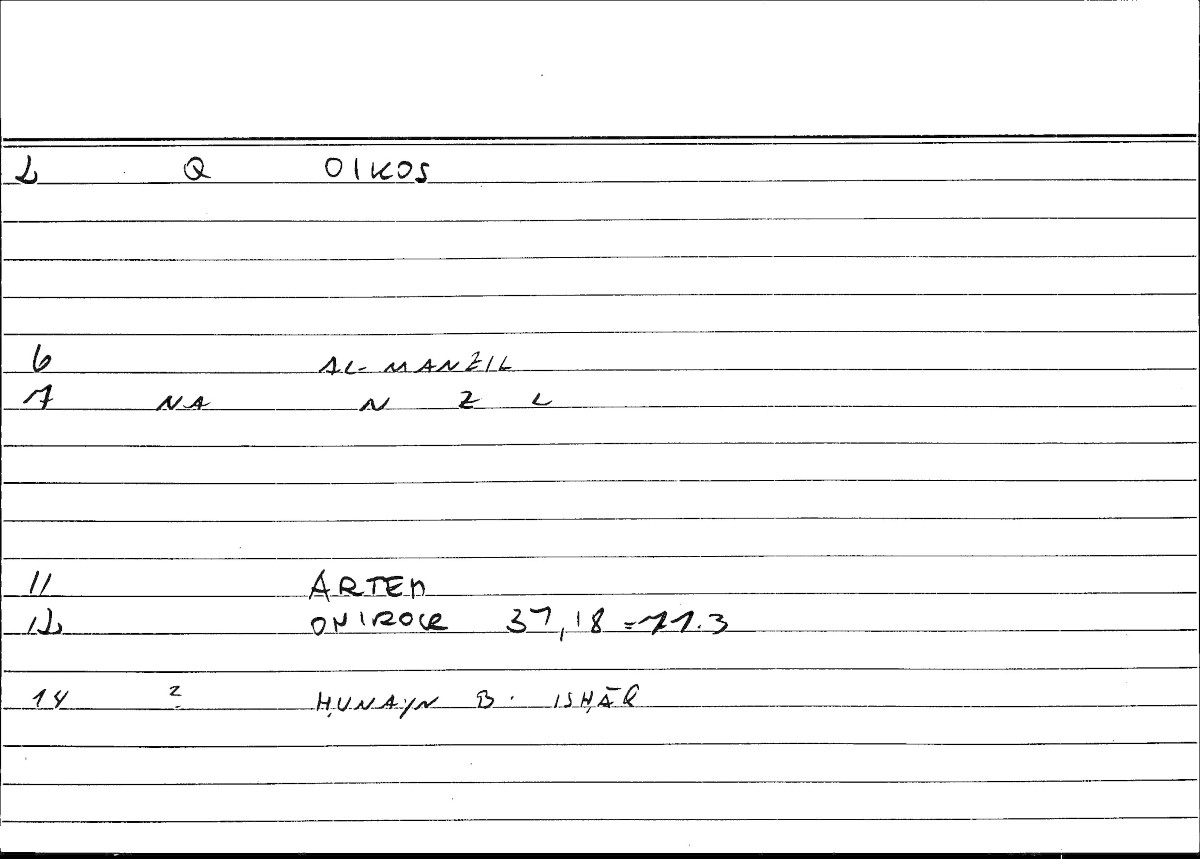 2 Q OIKOS
6 AL-MANZIL
7 NA N Z L
11 ARTEM
12 ONIROCR 37,18 = 77.3
14 2 ḤUNAYN B. ISḤĀQ